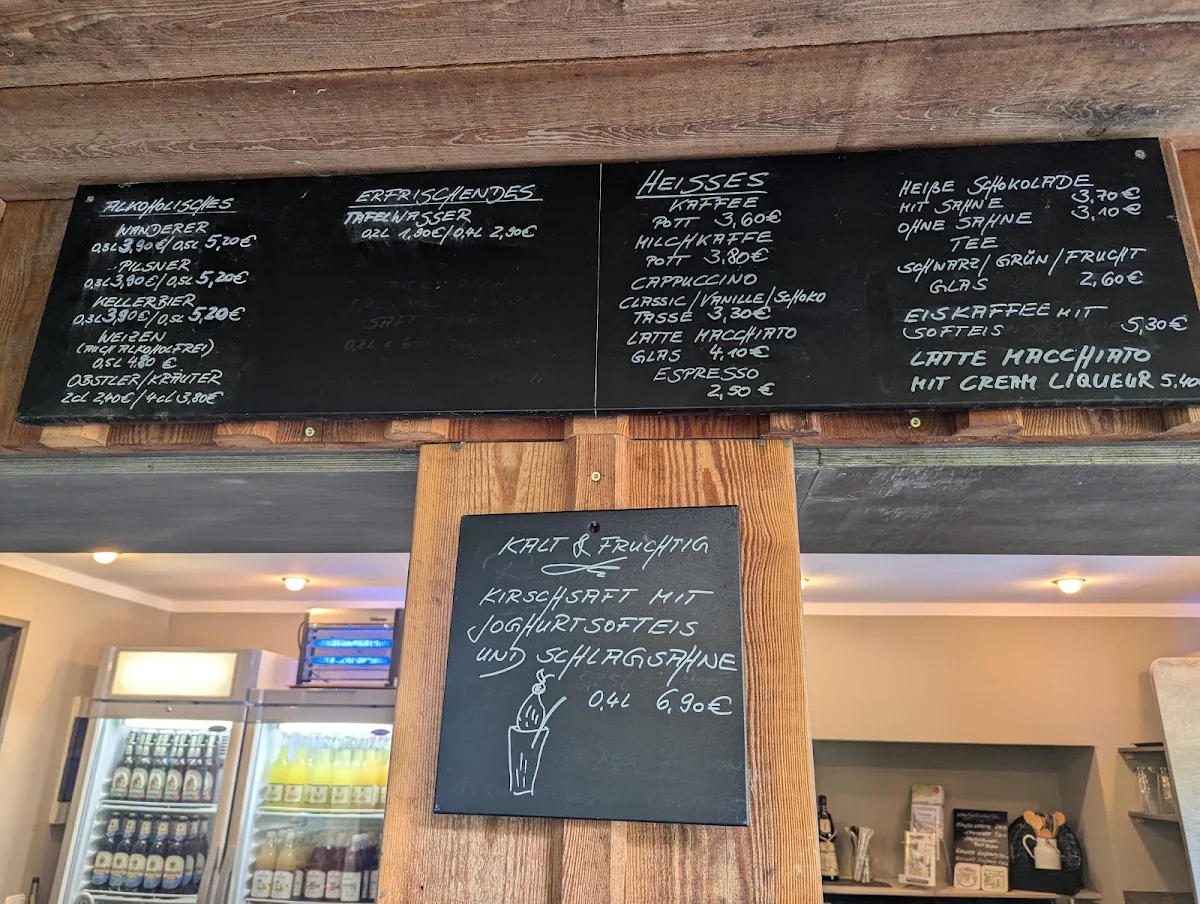 ALKOHOLISCHES
WANDERER
0,3L 3,90€/0,5L 5,20€
PILSNER
0,3L 3,90€/0,5L 5,20€
KELLERBIER
0,3L 3,90€/0,5L 5,20€
WEIZEN
(AUCH ALKOHOLFREI)
0,5L 4.80 €
OBSTLER/KRÄUTER
2cl 2,40€/4cl 3,80€
ERFRISCHENDES
TAFELWASSER
0,2L 1,90€/0,4L 2,90€
HEISSES
KAFFEE
POTT 3,60€
MILCHKAFFE
POTT 3,80€
CAPPUCCINO
CLASSIC/VANILLE/SCHOKO
TASSE 3,30€
LATTE MACCHIATO
GLAS 4.10€
ESPRESSO
2,50 €
HEIßE SCHOKOLADE
MIT SAHNE 3,70€
OHNE SAHNE 3,10€
TEE
SCHWARZ/GRÜN/FRUCHT
GLAS 2,60€
EISKAFFEE MIT
SOFTEIS 5,30€
LATTE MACCHIATO
MIT CREAM LIQUEUR 5,40
KALT & FRUCHTIG
KIRSCHSAFT MIT
JOGHURTSOFTEIS
UND SCHLAGSAHNE
0,4L 6,90€